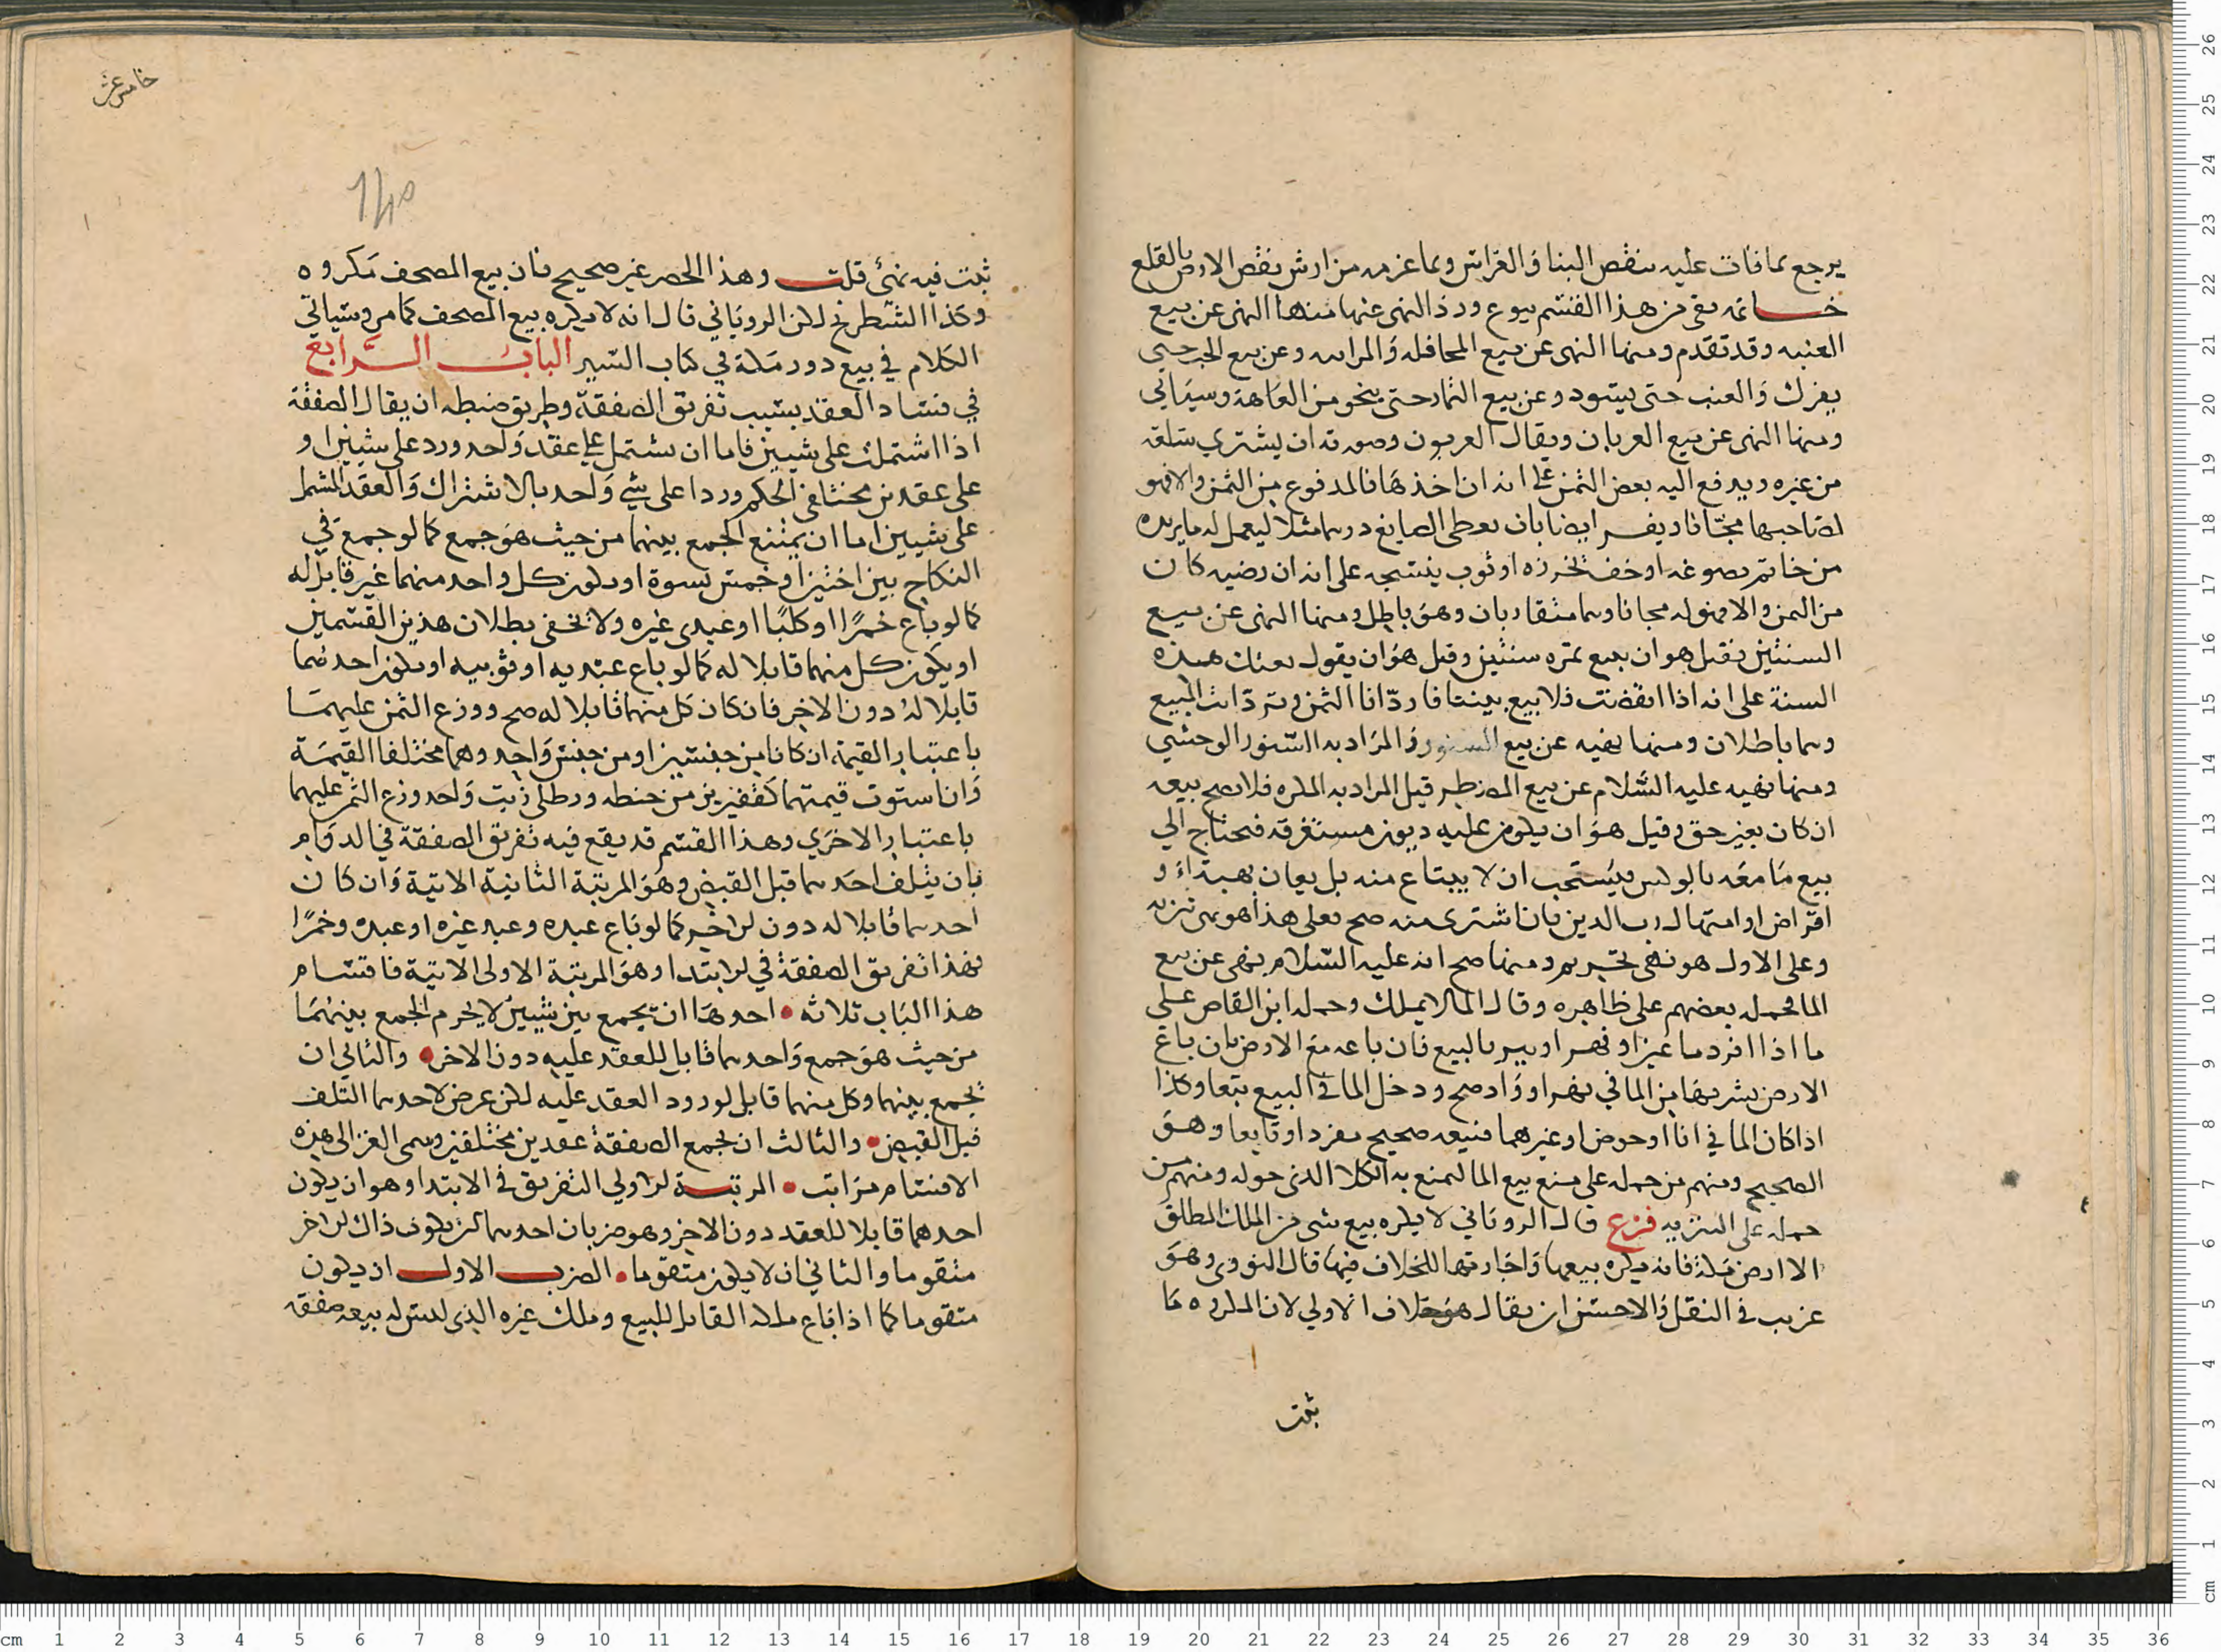 يرجع بما فات عليه بنقص البنا والغراس وبما غرمه من ارش نقص الارض بالقلع
خاتمه بقى من هذا القسم بيوع ورد النهى عنها منها النهى عن بيع
العنبه وقد تقدم ومنها النهى عن بيع المحاقله والمزابنه وعن بيع الحب حتى
يفرك والعنب حتى يسود وعن بيع الثمار حتى ينجو من العاهة وسياتى
ومنها النهى عن بيع العربان ويقال العربون وصورته ان يشترى سلعة
من غيره ويدفع اليه بعض الثمن على انه ان اخذها فالمدفوع من الثمن والا فهو
لصاحبها مجانا ويفسر ايضا بان يعطى الصايغ درهما مثلا ليعمل له ما يريده
من خاتم يصوغه او خف يخرزه او ثوب ينسجه على انه ان رضيه كان
من الثمن والا فهو له مجانا وهما متقاربان وهو باطل ومنها النهى عن بيع
السنين فقيل هو ان يبيع ثمره سنين وقيل هو ان يقول بعتك هذه
السنة على انه اذا انقضت فلا بيع بيننا فارد انا الثمن وترد انت المبيع
وهما باطلان ومنها نهيه عن بيع السنور والمراد به السنور الوحشي
ومنها نهيه عليه السلام عن بيع المضطر قيل المراد به المكره فلا يصح بيعه
ان كان بغير حق وقيل هو ان يكون عليه ديون مستغرقه فيحتاج الي
بيع ما معه بالوكس فيستحب ان لا يبتاع منه بل يعان بهبة او
اقراض او امتهال رب الدين فان اشترى منه صح فعلى هذا هو نهى تنزيه
وعلى الاول هو نهى تحريم ومنها صح انه عليه السلام نهى عن بيع
الما فحمله بعضهم على ظاهره وقال الما لا يملك وحمله ابن القاص على
ما اذا افرد ما عين او نهر او بير بالبيع فان باعه مع الارض بان باع
الارض بشربها من الما في نهر او واد صح ودخل الما في البيع تبعا وكذا
اذا كان الما في انا او حوض او غيرهما فبيعه صحيح مفرد او تابعا وهو
الصحيح ومنهم من حمله على منع بيع الما ليمنع به الكلا الذى حوله ومنهم من
حمله على التنزيه فرع قال الرويانى لا يكره بيع شى من الملك المطلق
الا ارض مكة فانه يكره بيعها واجارتها للخلاف فيها قال النووى وهو
غريب في النقل والاحسن ان يقال هو خلاف الاولي لان المكروه ما
ثبت
خامس عشر
140
ثبت فيه نهى قلت وهذا الحصر غير صحيح فان بيع المصحف مكروه
وكذا الشطرنج لكن الروياني قال انه لا يكره بيع المصحف كما مر وسياتي
الكلام في بيع دور مكة في كتاب السير الباب الرابع
في فساد العقد بسبب تفريق الصفقة وطريق ضبطه ان يقال الصفقة
اذا اشتملت على شيين فاما ان يشتمل علي عقد واحد ورد على شيين او
على عقدين مختلفى الحكم وردا على شي واحد بالاشتراك والعقد المشتمل
على شيين اما ان يمتنع الجمع بينهما من حيث هو جمع كما لو جمع في
النكاح بين اختين او خمس نسوة او يكون كل واحد منهما غير قابل له
كما لو باع خمرا او كلبا او عبدى غيره ولا تخفى بطلان هذين القسمين
او يكون كل منهما قابلا له كما لو باع عبديه او ثوبيه او يكون احدهما
قابلا له دون الاخر فان كان كل منهما قابلا له صح ووزع الثمن عليهما
باعتبار القيمة ان كانا من جنسين او من جنس واحد وهما مختلفا القيمة
وان استوت قيمتهما كقفيزين من حنطه ورطلى زيت واحد وزع الثمن عليهما
باعتبار الاخرى وهذا القسم قد يقع فيه تفريق الصفقة في الدوام
بان يتلف احدهما قبل القبض وهو المرتبة الثانية الاتية وان كان
احدهما قابلا له دون الاخر كما لو باع عبده وعبد غيره او عبده وخمرا
فهذا تفريق الصفقة في الابتدا وهو المرتبة الاولى الاتية فاقسام
هذا الباب ثلاثه احدها ان يجمع بين شيين لا يحرم الجمع بينهما
من حيث هو جمع واحدهما قابل للعقد عليه دون الاخر والثاني ان
تجمع بينهما وكل منهما قابل لورود العقد عليه لكن عرض لاحدهما التلف
قبل القبض والثالث ان تجمع الصفقة عقدين مختلفين وسمى الغزالى هذه
الاقسام مراتب المرتبة الاولي التفريق في الابتدا وهو ان يكون
احدهما قابلا للعقد دون الاخر وهو ضربان احدهما ان يكون ذاك الاخر
متقوما والثاني ان لا يكون متقوما الضرب الاول ان يكون
متقوما كما اذا باع ملكه القابل للبيع وملك غيره الذى ليس له بيعه صفقه